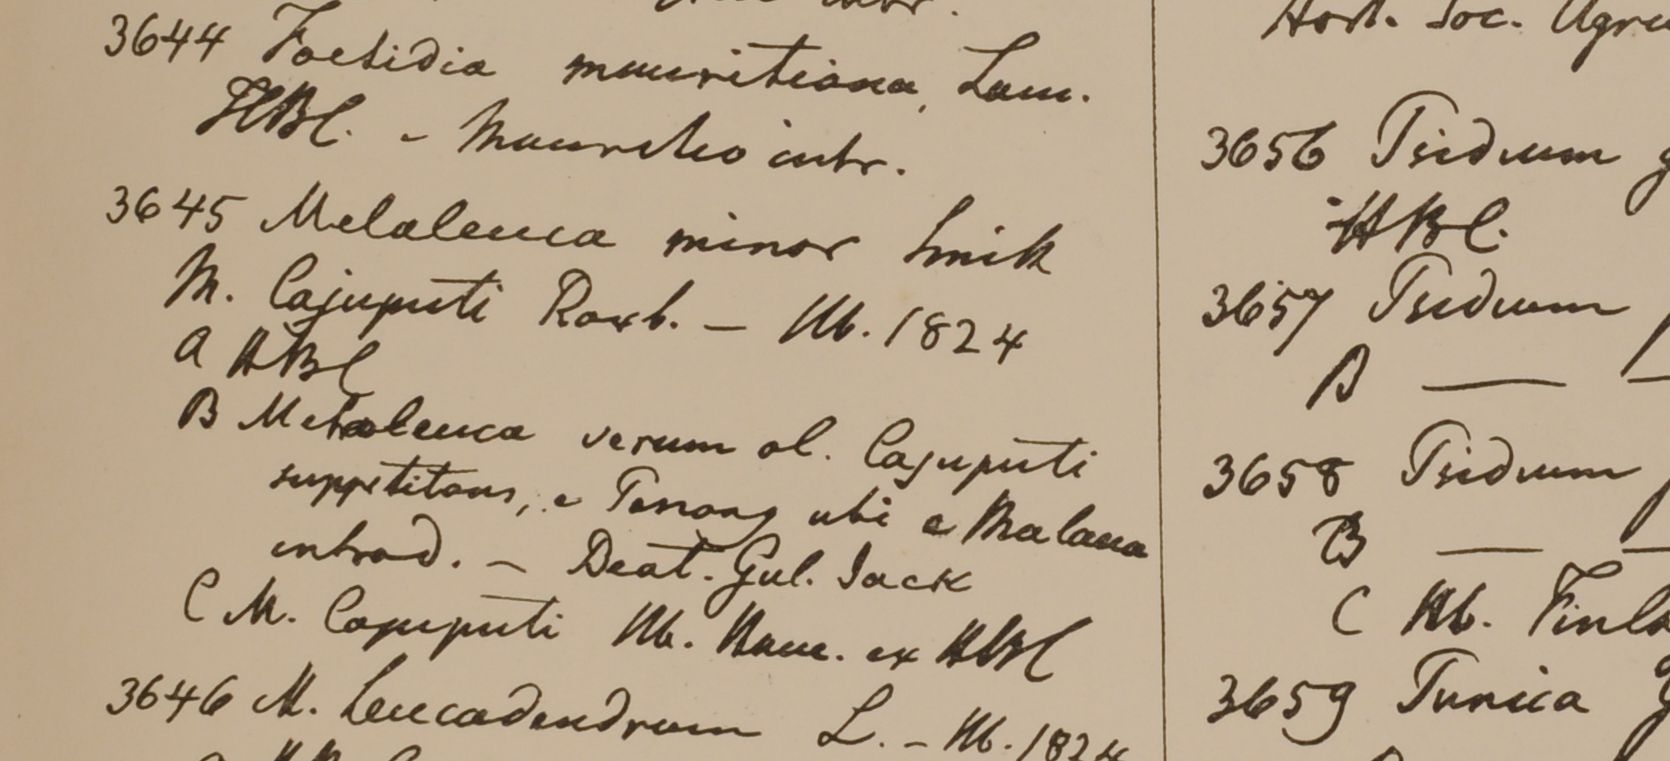 intr.
3644 Foetidia mauritiana, Lam.
HBC. - Mauritio intr.
3645 Melaleuca minor Smith
M. Cajuputi Roxb. - Hb. 1824
A HBC
B Melaleuca verum ol. Cajuputi
suppetitans, e Penang ubi e Malacca
introd. - Deat. Gul. Jack
C M. Cajuputi Hb. Ham. ex HBC
3646 M. Leucadendrum L. - Hb. 1824
Hort. Soc. Agric
3656 Psidium g
HBC.
3657 Psidium
B —
3658 Psidium
B —
C Hb. Finla
3659 Punica G